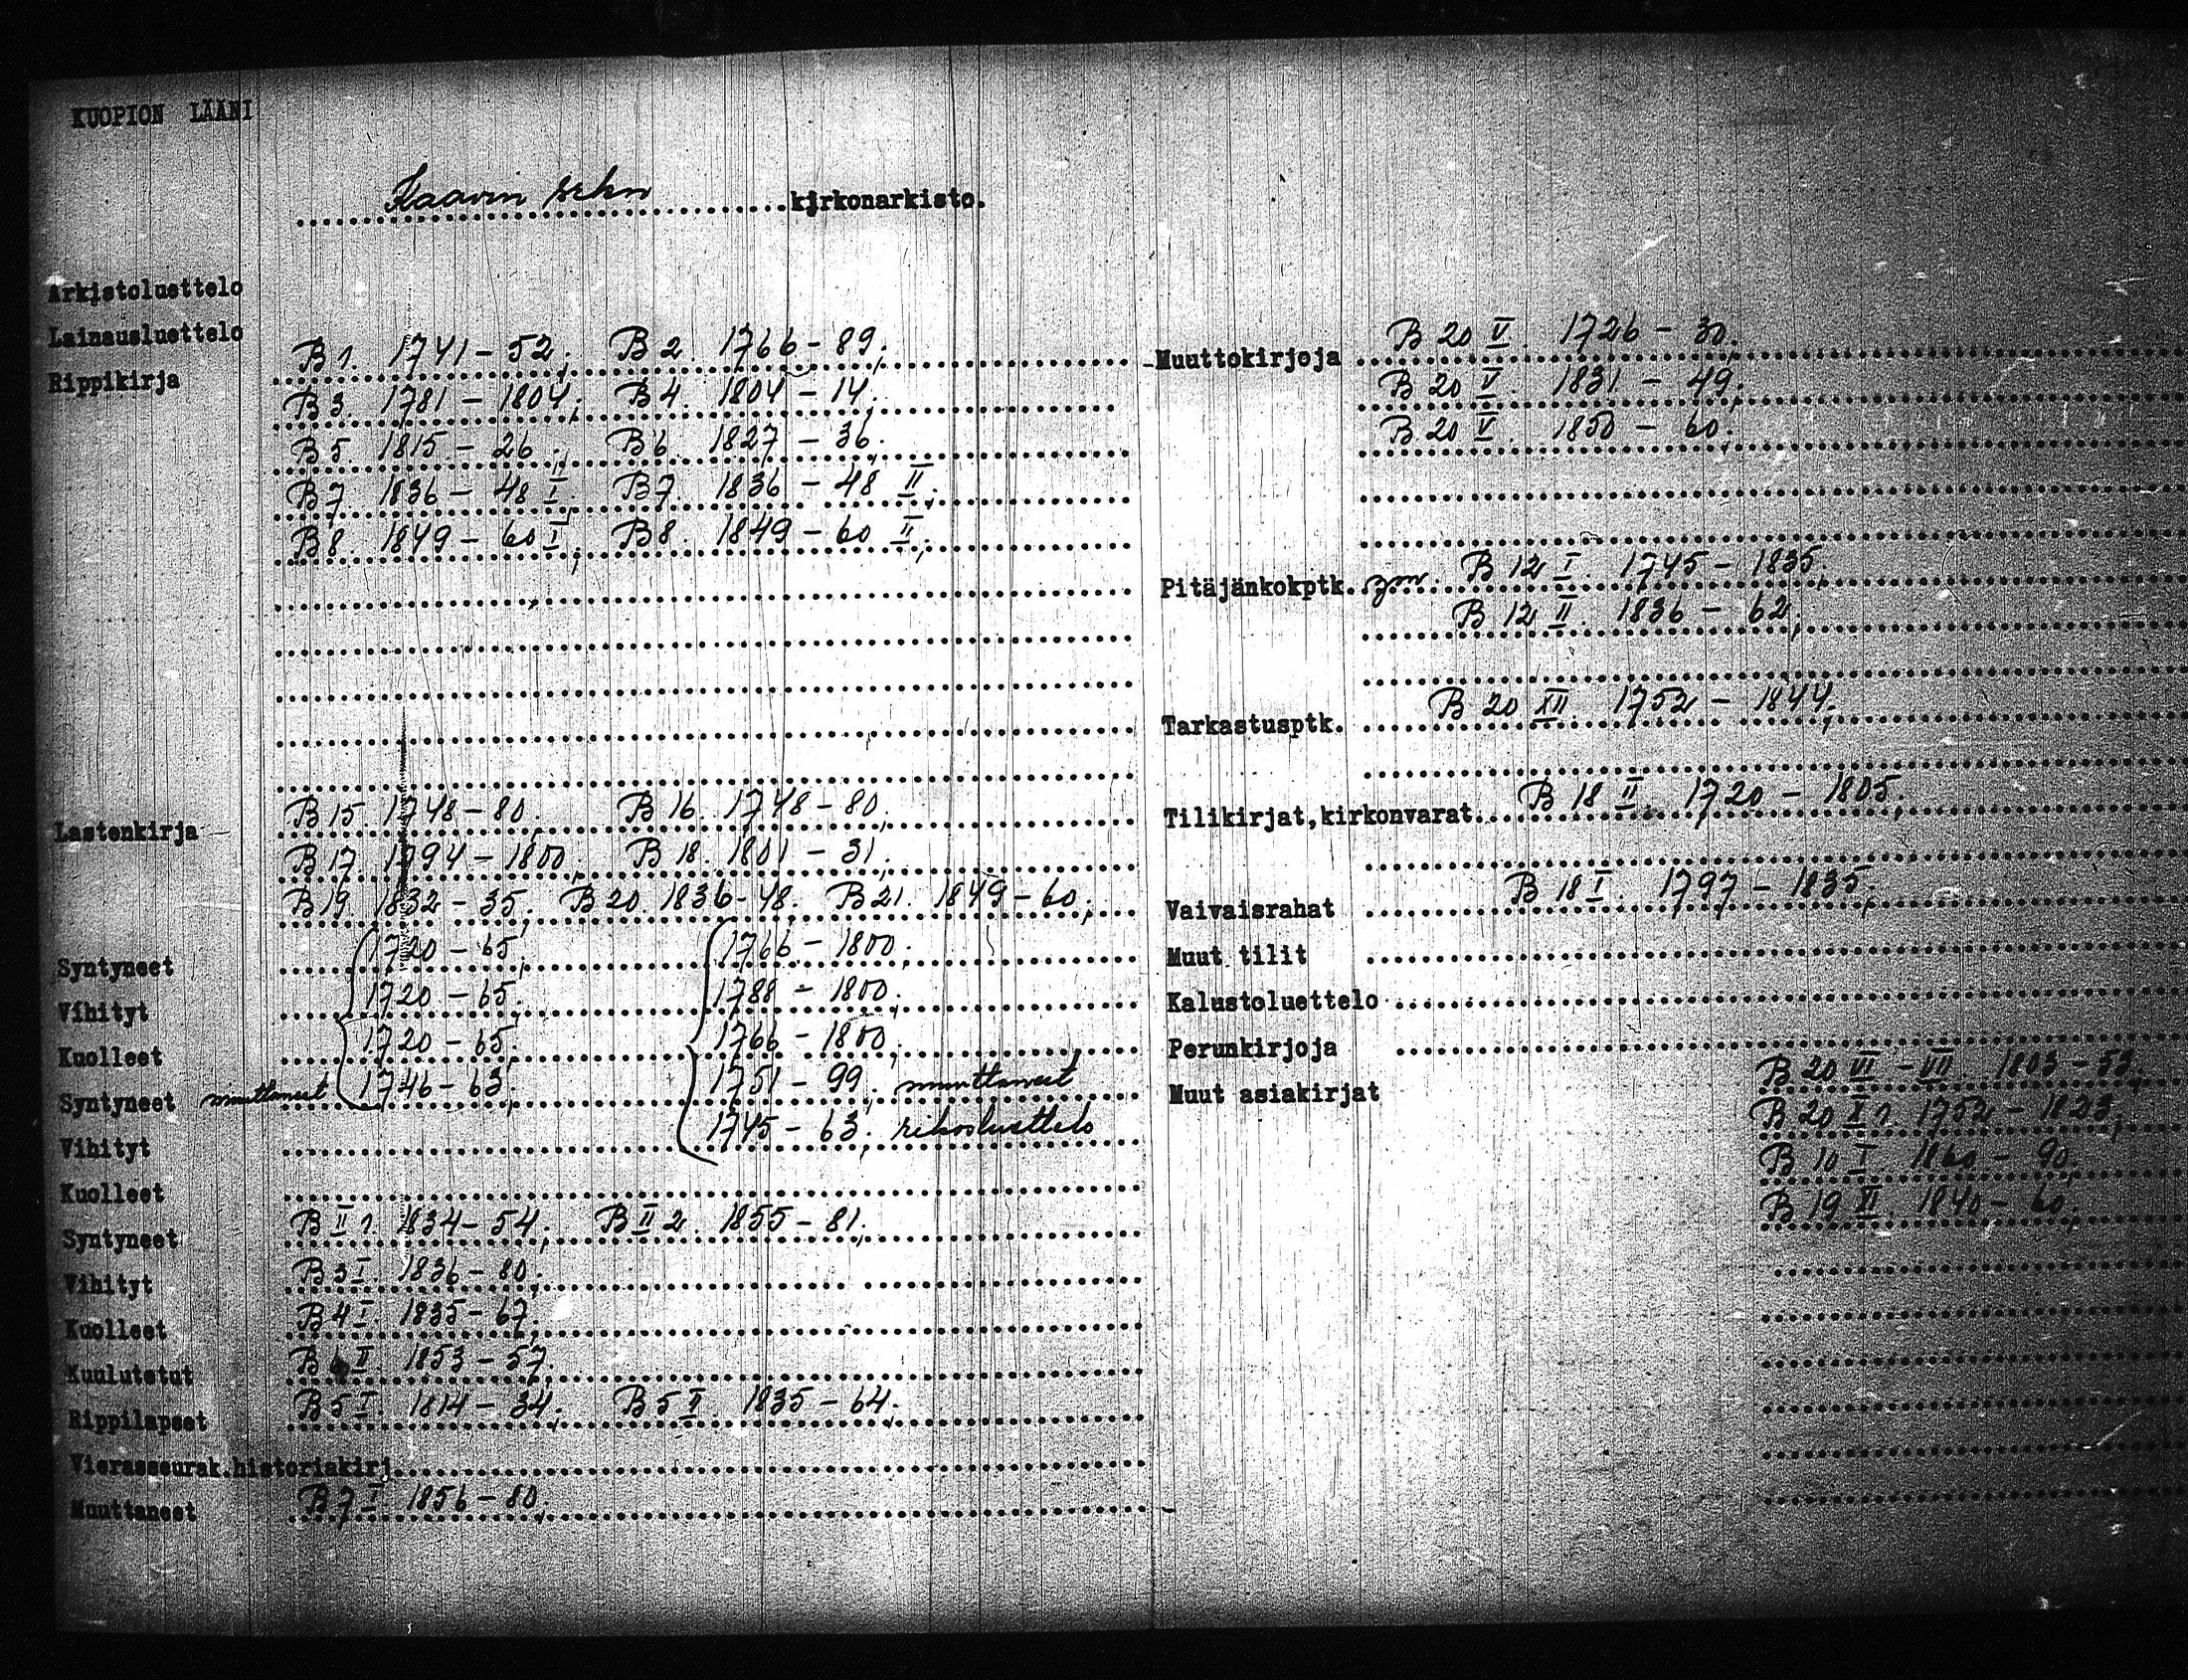 KUOPION LÄÄNI
Kaavin srkn kirkonarkisto.
Arkistoluettelo
Lainausluettelo
Rippikirja B 1. 1741 - 52; B 2. 1766 - 89;
B 3. 1781 - 1804; B 4. 1804 - 14;
B 5. 1815 - 26; B 6. 1827 - 36;
B 7. 1836 - 48 I; B 7. 1836 - 48 II;
B 8. 1849 - 60 I; B 8. 1849 - 60 II;
Lastenkirja B 15. 1748 - 80; B 16. 1748 - 80;
B 17. 1794 - 1800; B 18. 1801 - 31;
B 19. 1832 - 35; B 20. 1836 - 48. B 21. 1849 - 60;
Syntyneet 1720 - 65; 1766 - 1800;
Vihityt 1720 - 65; 1788 - 1800;
Kuolleet 1720 - 65; 1766 - 1800;
Syntyneet muuttaneet 1746 - 63; 1751 - 99; muuttaneet
Vihityt 1745 - 63; rikosluettelo
Kuolleet
Syntyneet B II 1. 1834 - 54; B II 2. 1855 - 81;
Vihityt B 3 I. 1836 - 80;
Kuolleet B 4 I. 1835 - 67;
Kuulutetut II. 1853 - 57.
Rippilapset B 5 I. 1814 - 34; B 5 II. 1835 - 64;
Vierasseurak.historiakirj.
Muuttaneet B 7 I. 1856 - 80.
Muuttokirjoja B 20 V. 1726 - 30;
B 20 V. 1831 - 49;
B 20 V. 1850 - 60;
Pitäjänkokptk. ym. B 12 I. 1745 - 1835;
B 12 II. 1836 - 62;
Tarkastusptk. B 20 XII. 1752 - 1844;
Tilikirjat,kirkonvarat. B 18 II. 1720 - 1805;
Vaivaisrahat B 18 I. 1797 - 1835;
Muut tilit
Kalustoluettelo
Perunkirjoja
Muut asiakirjat B 20 VI - VII. 1803 - 53;
B 20 X 1. 1752 - 1823;
B 10 I. 1860 - 90;
B 19 VI. 1840 - 60;